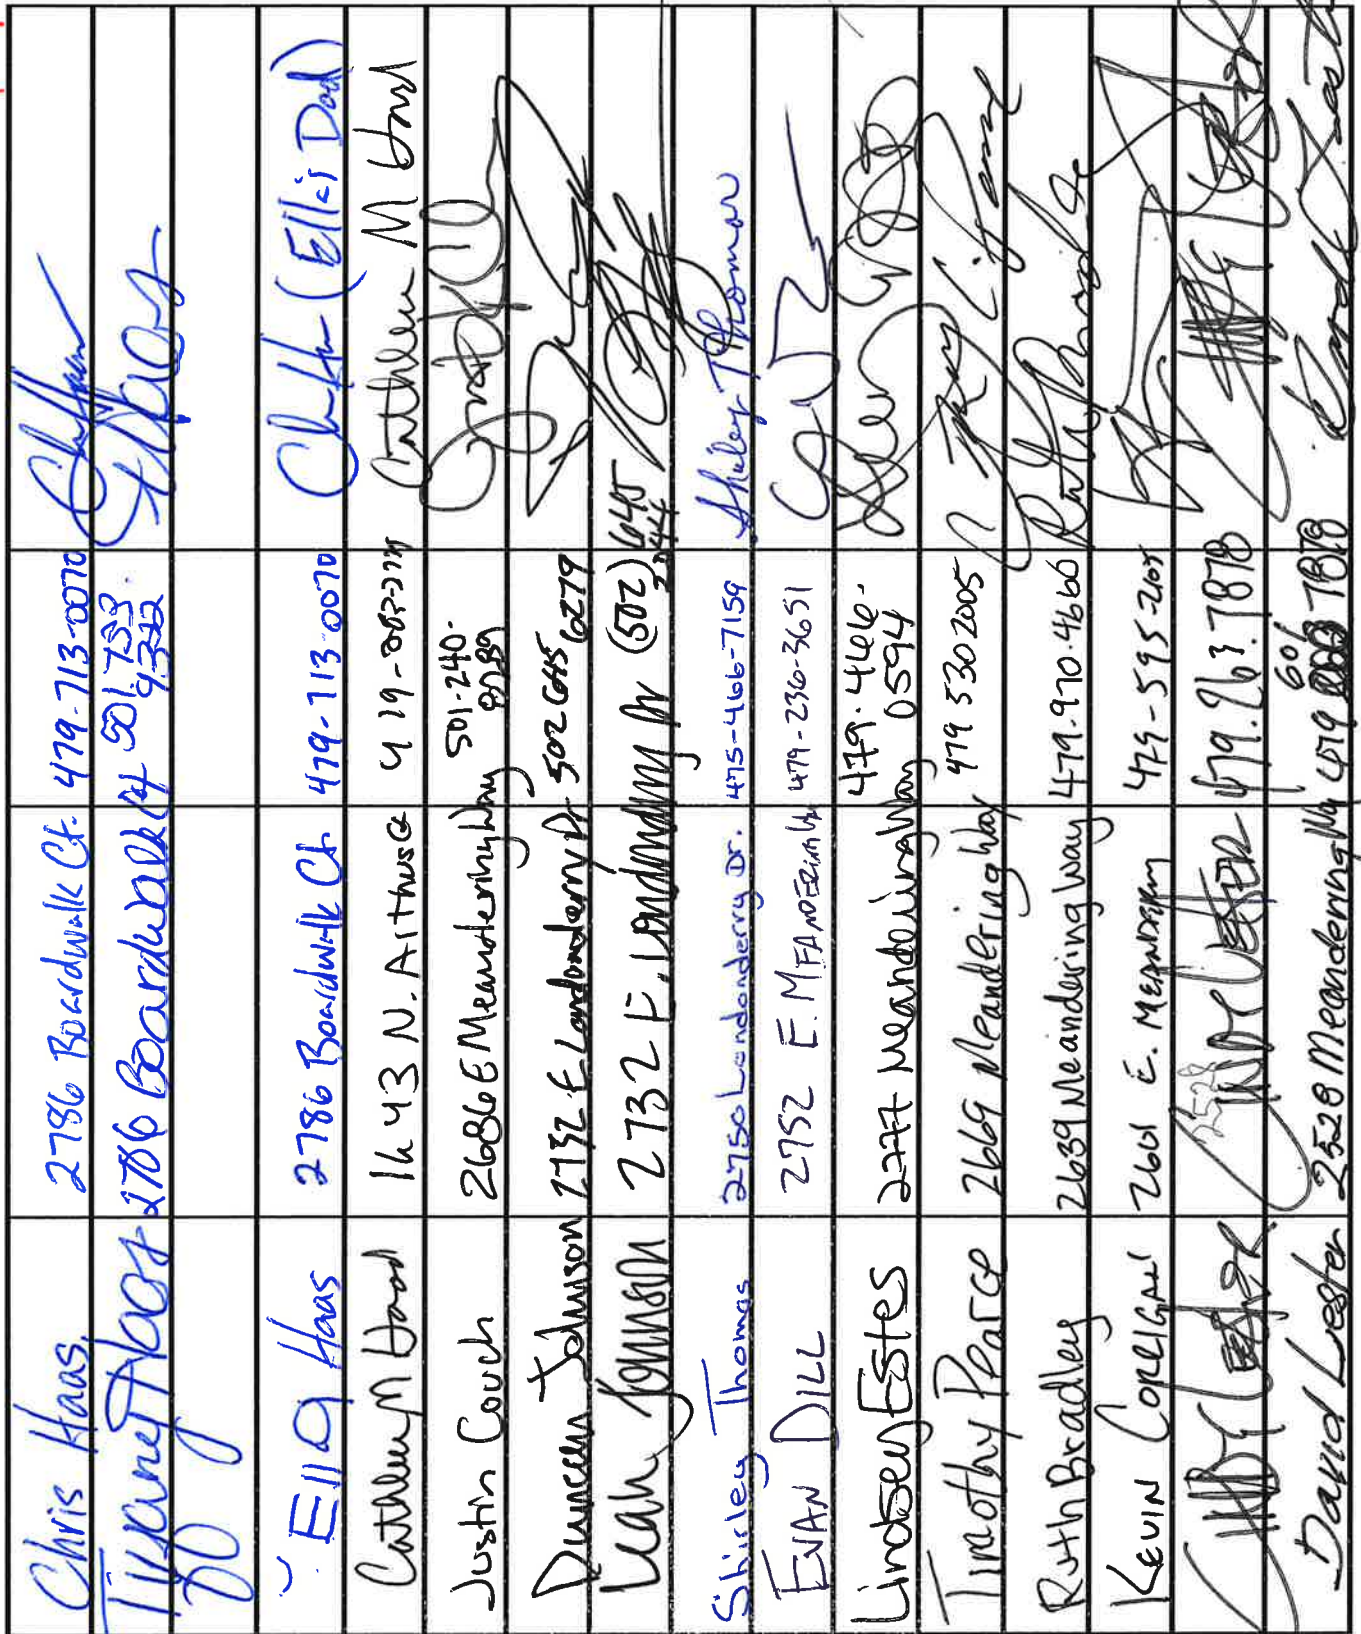 Chris Haas 2786 Boardwalk Ct. 479-713-0070
Tiffaney Haas 2786 Boardwalk Ct 501 733-9322
Ella Haas 2786 Boardwalk Ct 479-713-0070 (Ella's Dad)
Cathleen M Hood 1643 N. Arthus Cathleen M Hood
Justin Couch 2686 E Meandering Way 501-240-
Duncan Johnson 2732 E Londonderry Dr 502 645 6279
Leah Johnson 2732 E. Londonderry Dr (502) 645
Shirley Thomas 2750 Londonderry Dr. 475-466-7159 Shirley Thomas
EVAN DILL 2752 E. MEANDERING 479-236-3651
Lindsey Estes 2777 Meandering Way 479.466.0594
Timothy Pearce 2669 Meandering Way 479 530 2005
Ruth Bradley 2639 Meandering Way 479.970.4666 Ruth Bradley
KEVIN CORRIGAN 2601 E. MEANDERING 479-595-2105
479.263.7878
David Lester 2528 Meandering Wy 479 606 7878 David Lester